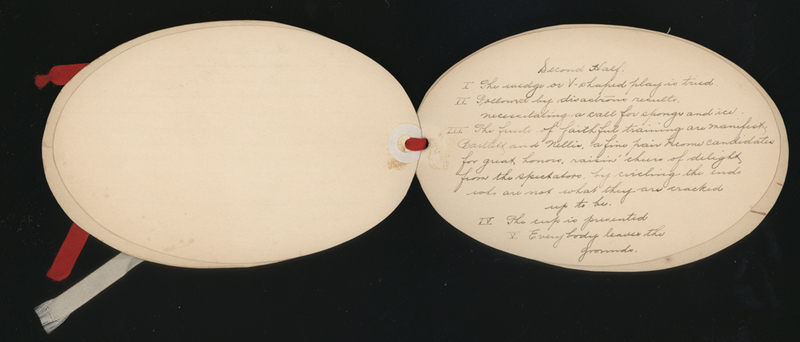 Second Half.
I The wedge or V-shaped play is tried
II Followed by disastrous results,
necessitating a call for sponge and ice.
III The fruits of faithful training are manifest.
Bartlett and Nellis, a fine pair become candidates
for great honors, raisin' cheers of delight,
from the spectators, by circling the ends
who are not what they are cracked
up to be.
IV. The cup is presented
V Everybody leaves the
grounds.